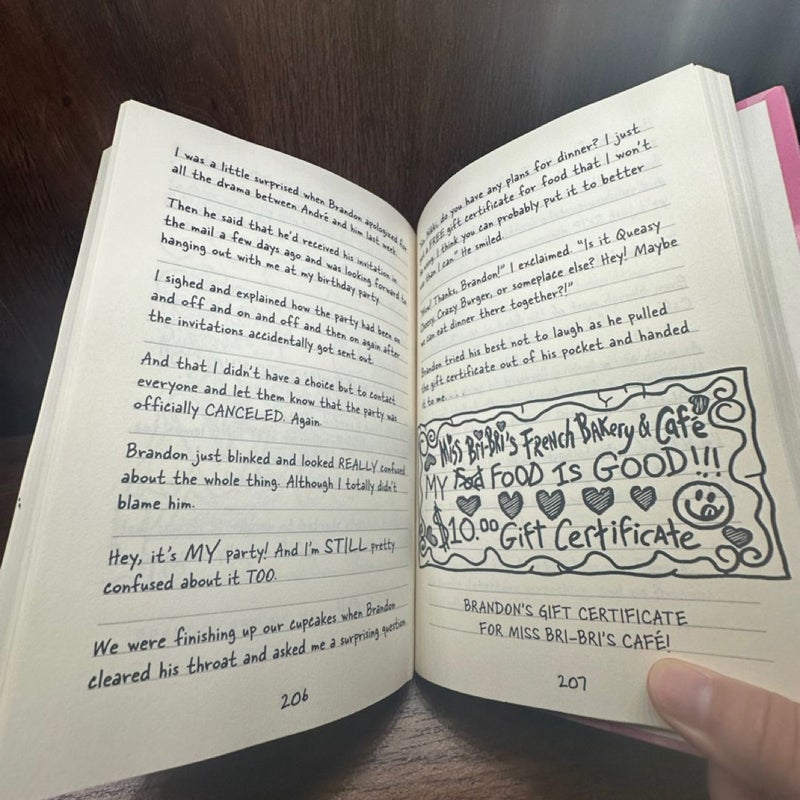 I was a little surprised when Brandon apologized for
all the drama between André and him last week.
Then he said that he'd received his invitation in
the mail a few days ago and was looking forward to
hanging out with me at my birthday party.
I sighed and explained how the party had been on
and off and on and off and then on again after
the invitations accidentally got sent out.
And that I didn't have a choice but to contact
everyone and let them know that the party was
officially CANCELED. Again.
Brandon just blinked and looked REALLY confused
about the whole thing. Although I totally didn't
blame him.
Hey, it's MY party! And I'm STILL pretty
confused about it TOO.
We were finishing up our cupcakes when Brandon
cleared his throat and asked me a surprising question.
206
Nikki, do you have any plans for dinner? I just
a FREE gift certificate for food that I won't
I think you can probably put it to better
than I can." He smiled.
Thanks, Brandon!" I exclaimed. "Is it Queasy
Crazy Burger, or someplace else? Hey! Maybe
can eat dinner there together?!"
Brandon tried his best not to laugh as he pulled
the gift certificate out of his pocket and handed
it to me. . . .
Miss Bri-Bri's French Bakery & Café
MY FOOD IS GOOD!!!
$10.00 Gift Certificate
BRANDON'S GIFT CERTIFICATE
FOR MISS BRI-BRI'S CAFÉ!
207